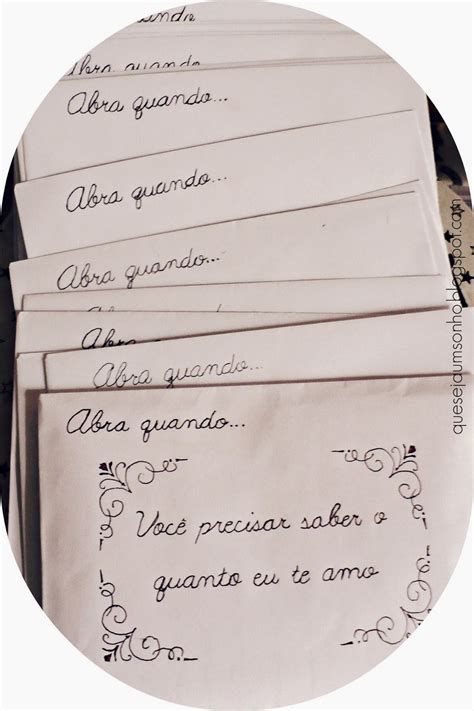 Abra quando...
Abra quando...
Abra quando...
Abra quando...
Abra quando...
Abra quando...
Você precisar saber o
quanto eu te amo
quesejaumsonho.blogspot.com